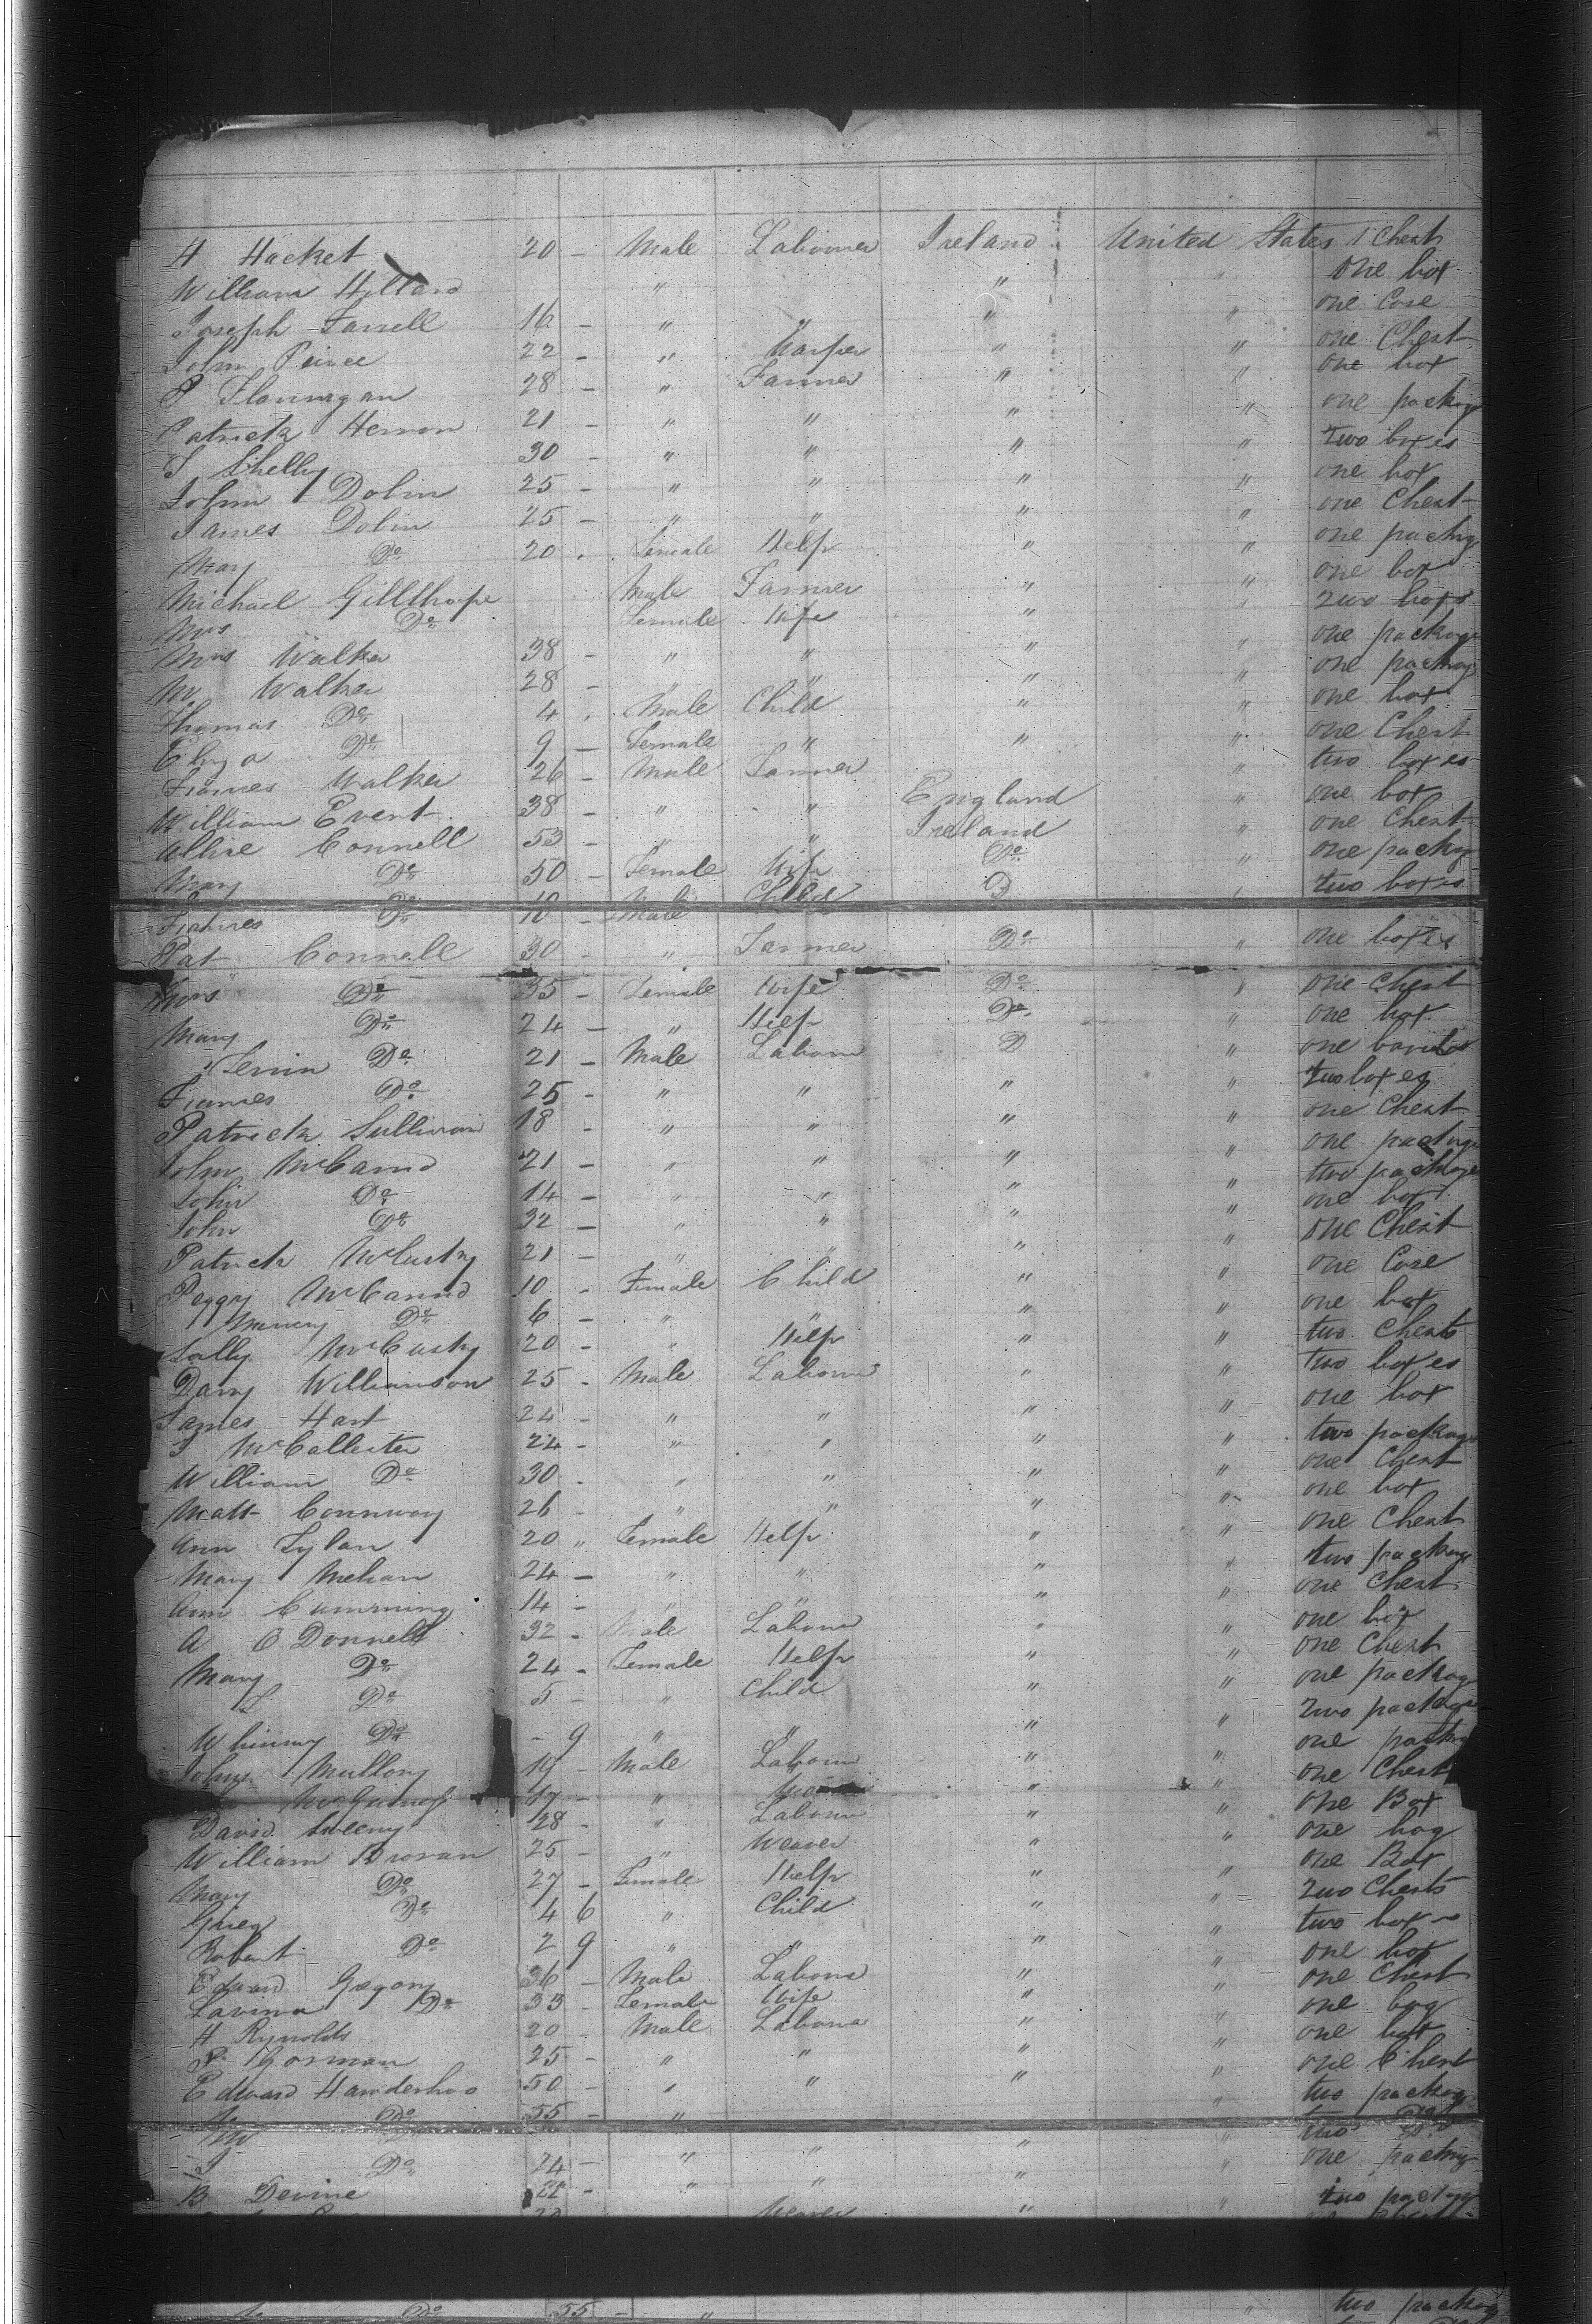 H Hacket 20 - Male Labourer Ireland United States 1 Chest
William Hilland " " " one box
Joseph Farrell 16 - " " " " one Case
John Peirce 22 - " " " one Chest
P Flannagan 28 - " Farmer " " one box
Patrick Herron 21 - " " " " one package
J Shelly 30 - " " " " two boxes
John Dolin 25 - " " " " one box
James Dolin 25 - " " " " one Chest
Mary Do 20 . Female Help " " one package
Michael Gillthorpe Male Farmer " " one box
Mrs Do Female Wife " " two boxes
Mrs Walker 38 - " " " " one package
M Walker 28 - " " " " one package
Thomas Do 4 . Male Child " " one box
Eliza Do 9 - Female " " " one Chest
Frances Walker 26 - Male Farmer " two boxes
William Event 38 - " " England " one box
Connell 53 - " " Ireland " one Chest
Mary Do 50 - Female Wife Do " one package
Frances Do 10 - Male Child D " two boxes
Pat Connell 30 - " Farmer Do " one boxes
Mrs Do 35 - Female Wife Do " one Chest
Mary Do 24 - " Help Do " one box
Do 21 - Male Labour D " one
Frances Do 25 - " " " " two boxes
Patrick Sullivan 18 - " " " " one Chest
John McCannd 21 - " " " " one package
John Do 14 - " " " " two package
John Do 32 - " " " " one box
Patrick McCusky 21 - " " " " one Chest
Peggy McCannd 10 - Female Child " " one Case
Do 6 - " " " " one box
Sally McCusky 20 - " Help " " two Chests
Dany Williamson 25 - Male Labour " " two boxes
James Hart 24 - " " " " one box
J McCallister 24 - " " " " two package
William Do 30 - " " " " one Chest
Matt Connway 26 - " " " " one box
Ann Tylan 20 " Female Help " " one Chest
Mary Mehan 24 - " " " " two package
Ann Cumming 14 - " " " " one Chest
A O Donnell 32 - Male Labour " " one box
Mary Do 24 - Female Help " " one Chest
L Do 5 - " Child " " one package
Whinny Do - 9 " " " " two package
John Mullony 19 - Male Labour " " one package
17 - " " " one Chest
David Sweeny 28 - " Labour " " one Box
William Brovan 25 - " Weaver " " one bag
Mary Do 27 - Female Help " " one Box
Do 4 6 " Child " " two Chests
Robert Do 2 9 " " " " two boxes
Edward Gregory 36 - Male Labour " " one box
Lavina Do 33 - Female Wife " " one Chest
H Rynolds 20 Male Laboua " " one bag
P Gorman 25 - " " " " one box
Edward Handerhoo 50 - " " " " one Chest
Do 55 - " " two package
M " " two Do
J Do 24 - " " " " one package
B Devine 22 - " " " " two package
Weaver " "
Do 55 - " " two package